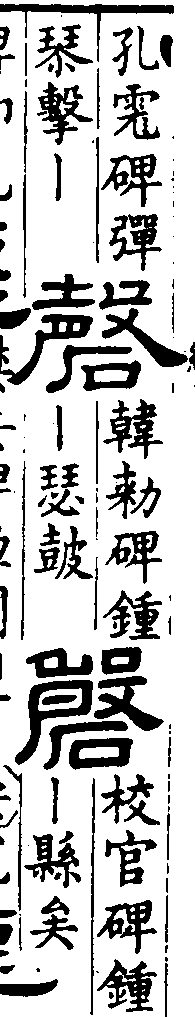 孔宙碑彈
琴擊丨
磬
韓勑碑鍾
丨瑟鼓
磬
校官碑鍾
丨縣矣